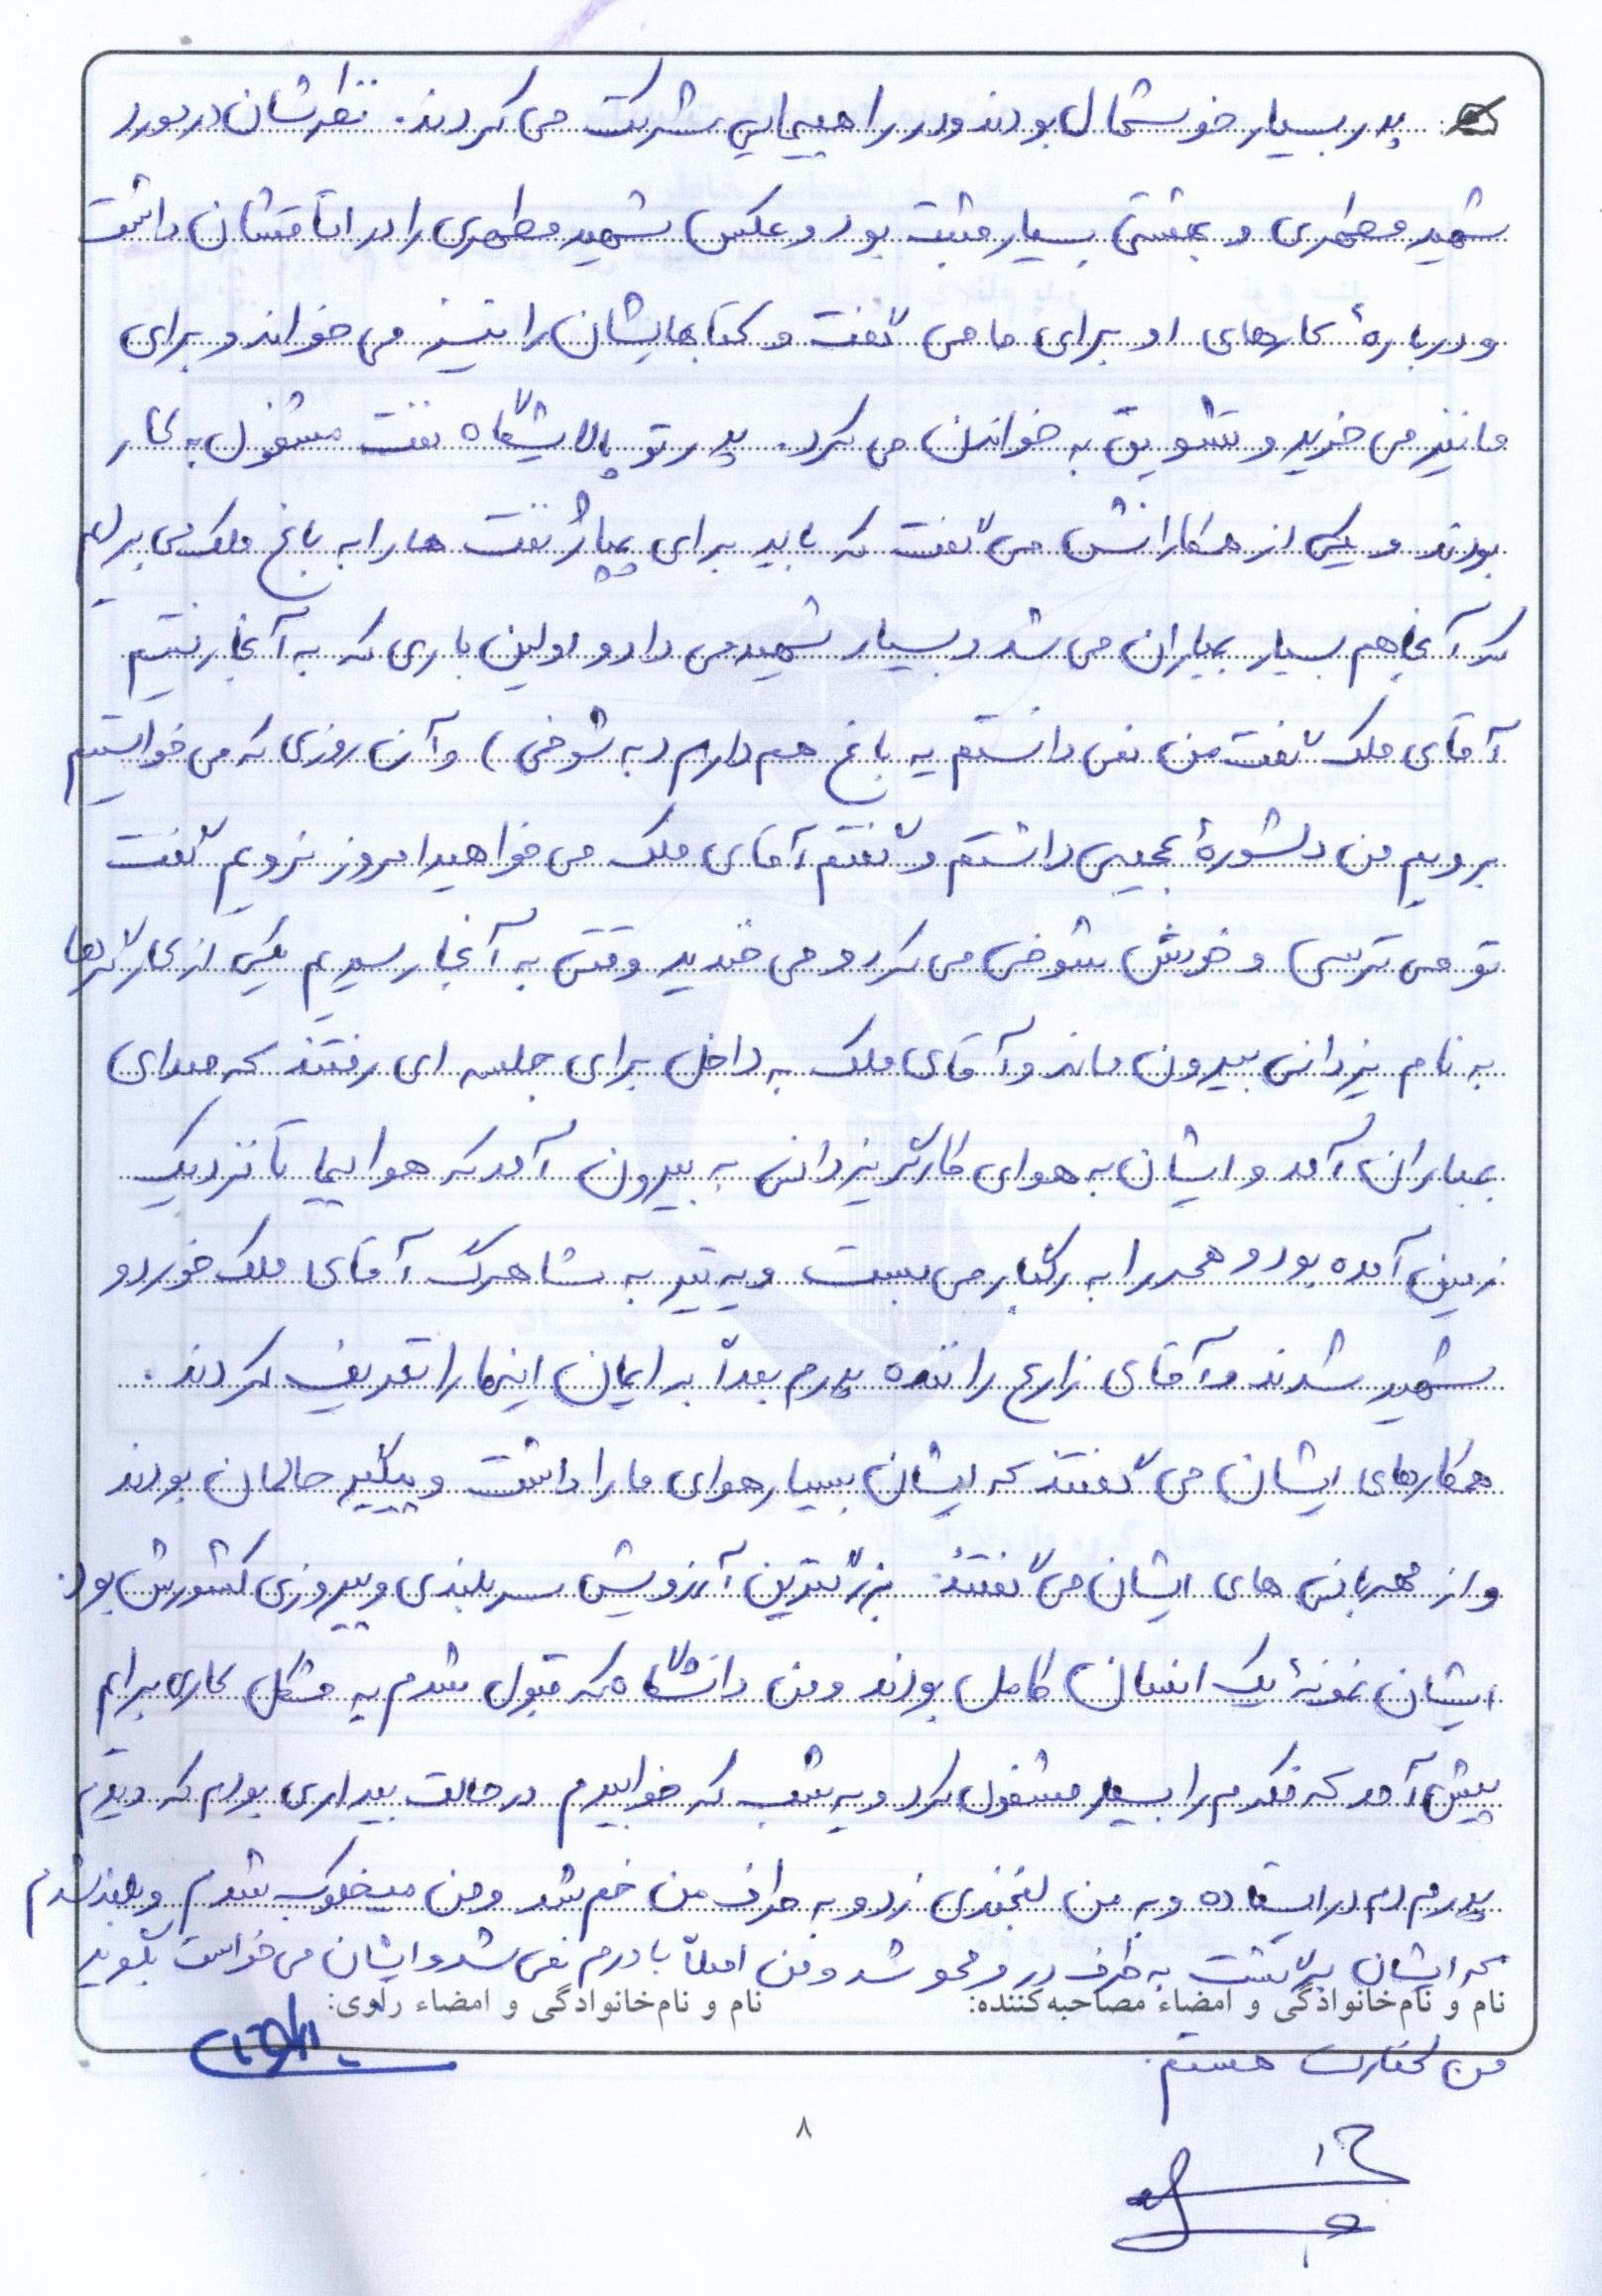 پدر بسیار خوشحال بودند و در راهپیمایی شرکت می کردند. نظرشان در مورد
شهید مطهری و بهشتی بسیار مثبت بود و عکس شهید مطهری را در اتاقشان داشت
و دربارهٔ کارهای او برای ما می گفت و کتابهایشان را نیز می خواند و برای
ما نیز می خرید و تشویق به خواندن می کرد. پدر تو پالایشگاه نفت مشغول به کار
بودند و یکی از همکارانش می گفت که باید برای پمپاژ نفت ما را به باغ ملک می بردیم
که آنجا هم بسیار بمباران می شد و بسیار شهید می داد و اولین باری که به آنجا رفتیم
آقای ملک گفت من نمی دانستم یه باغ هم دارم (به شوخی) و آن روزی که می خواستیم
برویم من دلشورهٔ عجیبی داشتم و گفتم آقای ملک می خواهید امروز نرویم گفت
تو می ترسی و خودش شوخی می کرد و می خندید وقتی به آنجا رسیدیم یکی از کارگرها
به نام یزدانی بیرون ماند و آقای ملک به داخل برای جلسه ای رفتند که صدای
بمباران آمد و ایشان به هوای کارگر یزدانی به بیرون آمد که هواپیما تا نزدیک
زمین آمده بود و همه را به رگبار می بست و یه تیر به شاهرگ آقای ملک خورد و
شهید شدند و آقای زارع راننده پدرم بعداً برایمان اینها را تعریف کردند.
همکارهای ایشان می گفتند که ایشان بسیار هوای ما را داشت و پیگیر حالمان بودند
و از مهربانی های ایشان می گفتند. بزرگترین آرزویش سربلندی و پیروزی کشورش بود.
ایشان نمونهٔ یک انسان کامل بودند و من دانشگاه که قبول شدم یه مشکل کاری برایم
پیش آمد که فکرم را بسیار مشغول کرد و یه شب که خوابیدم در حالت بیداری بودم که دیدم
پدرم دم در ایستاده و به من لبخندی زد و به طرف من خم شد و من میخکوب شدم و بلند شدم
که ایشان برگشت به طرف در و محو شد و من اصلاً باورم نمی شد و ایشان می خواست بگوید
نام و نام‌خانوادگی و امضاء مصاحبه‌کننده: نام و نام‌خانوادگی و امضاء راوی:
من کنارت هستم.
۸